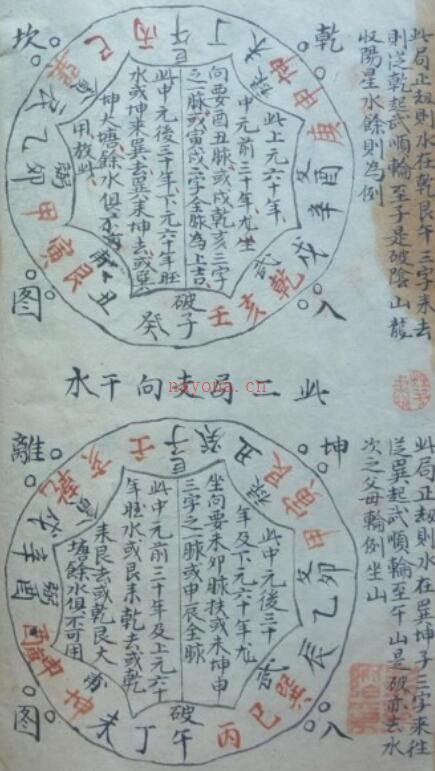 此局正劫則水在乾艮午三字来去
則從乾起武順輪至子是破陰山龍
收陽星水餘則為例
乾
坎
入
图
丁
午
丙
巳
乙
卯
甲
寅
艮
丑
癸
破
子
壬
亥
乾
戌
辛
酉
庚
申
坤
未
此上元六十年
中元前三十年凢坐
向要酉丑脉或戌乾亥三字
之一脉或寅戌二字全脉為上吉
此中元後三十年下元六十年旺
水或坤来巽去巽来坤去或巽
坤大塘餘水俱不用
用放此
此二局支向干水
nayona.cn
此局正劫則水在巽坤子三字来徃
從巽起武順輪至午山是破亦去水
次之父母輪例坐山
坤
離
入
图
壬
子
癸
丑
艮
寅
甲
卯
乙
辰
巽
巳
丙
午
破
丁
未
坤
申
酉
辛
乾
亥
此中元後三十
年及下元六十年凢
坐向要未卯脉扶或未坤申
三字之一脉或申辰全脉
此中元前三十年及上元六十
年旺水或艮来乾去或乾
来艮去或乾艮大
塘餘水俱不可用